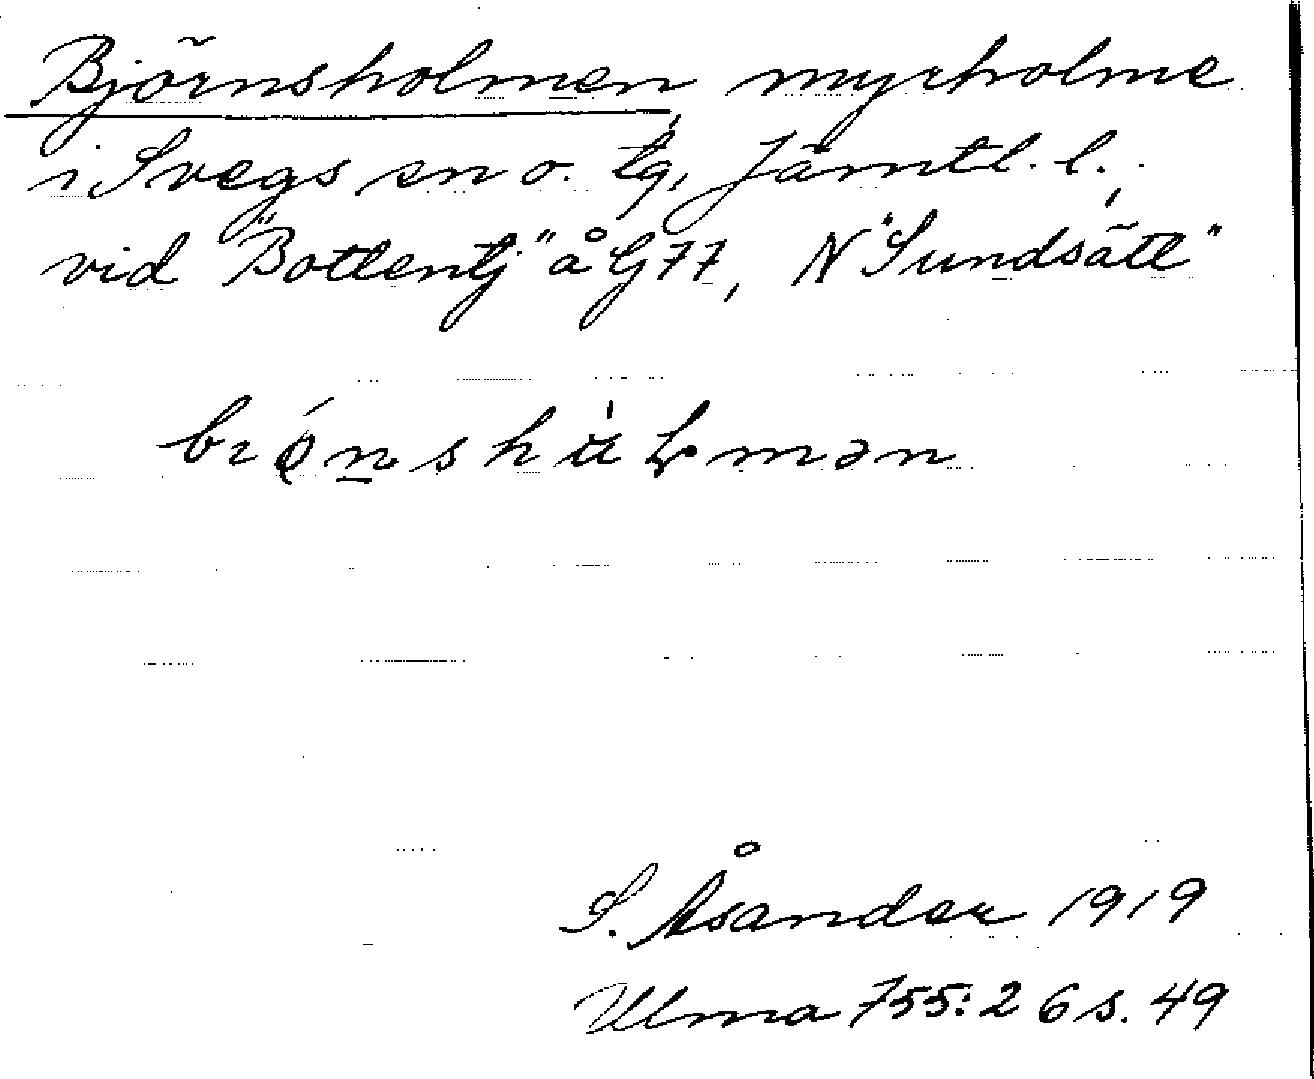 Björnsholmen, myrholme
i Svegs sn o. tg, Jämtl. l.,
vid "Bottentj" å G 77, N "Sundsätt"
S. Åsander 1919
Ulma 755:26 s. 49